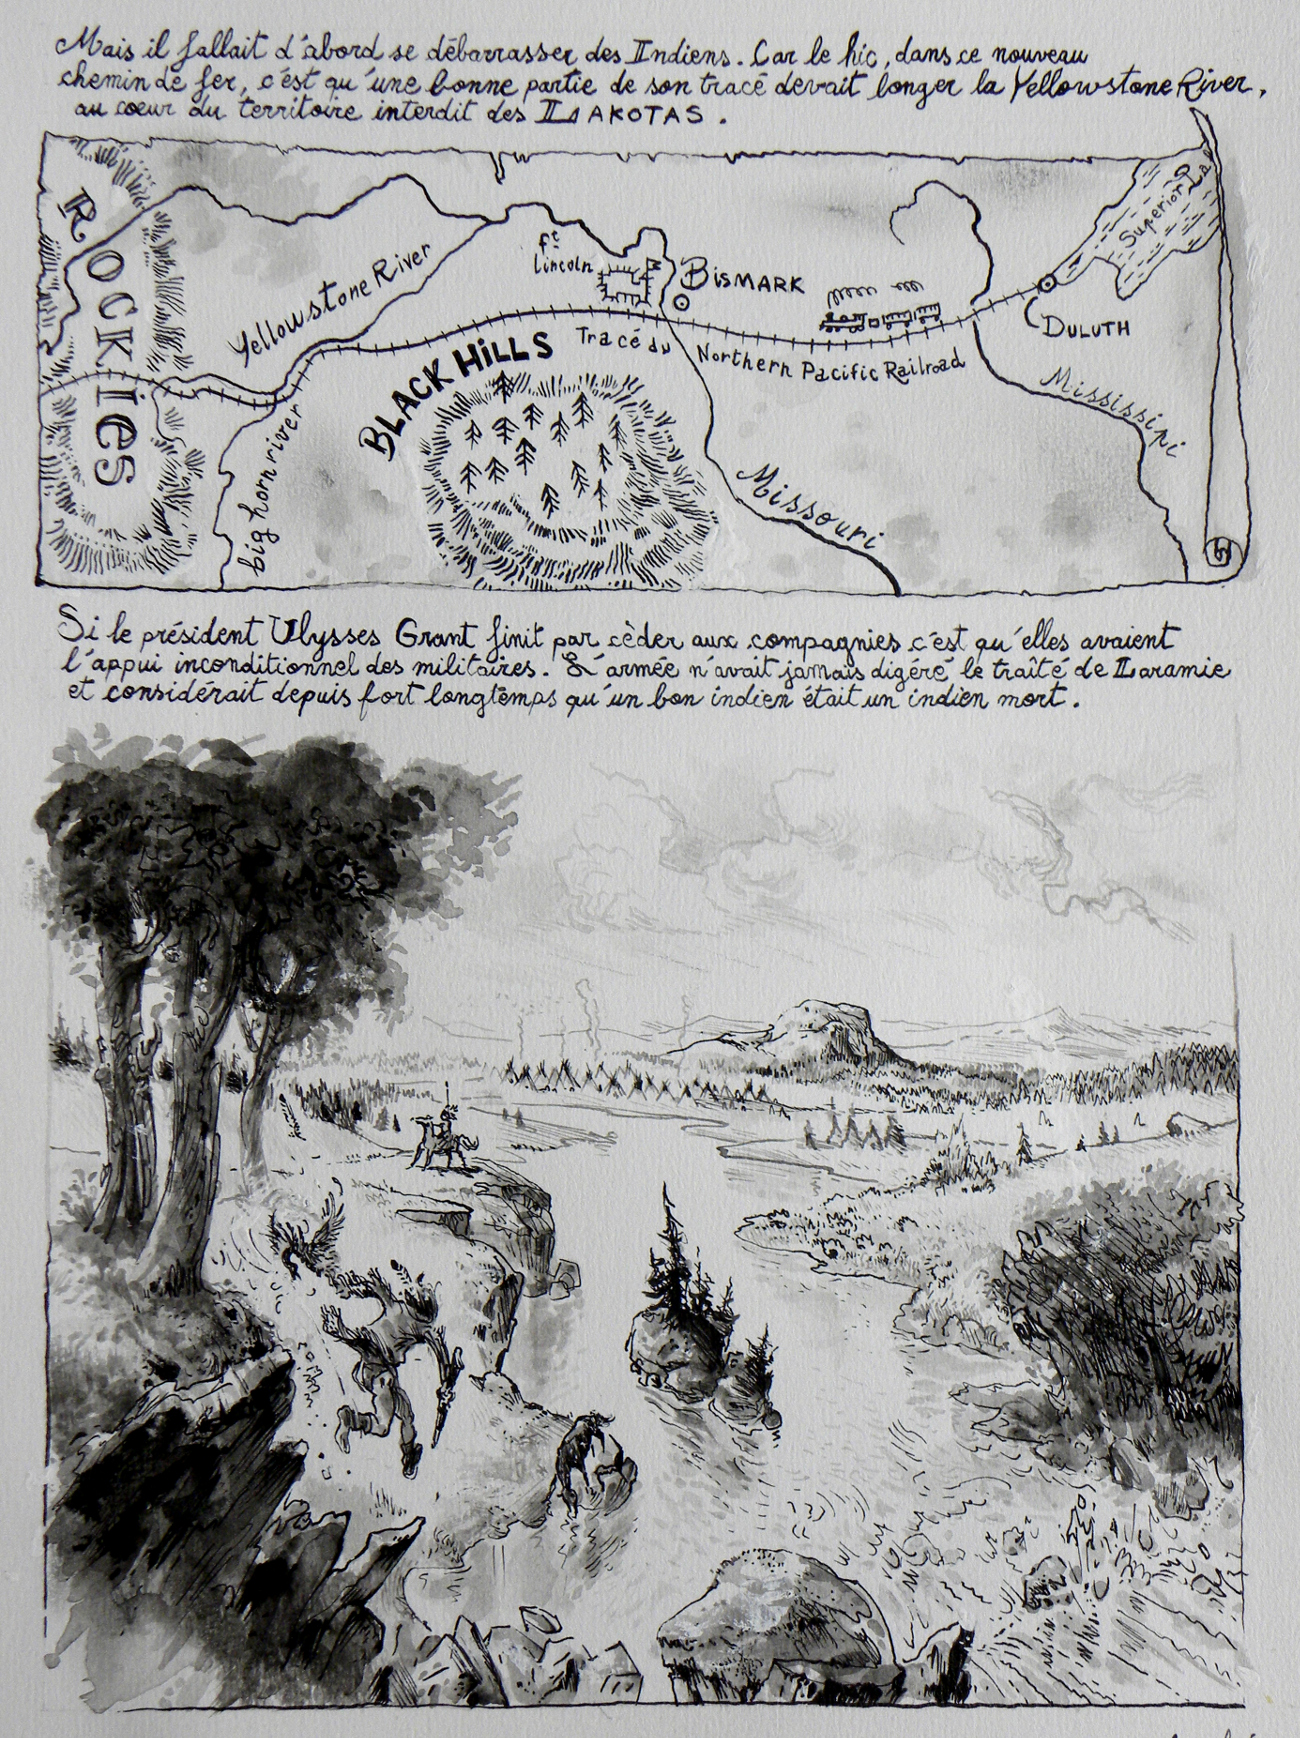 Mais il fallait d'abord se débarrasser des Indiens. Car le hic, dans ce nouveau
chemin de fer, c'est qu'une bonne partie de son tracé devait longer la Yellowstone River,
au coeur du territoire interdit des LAKOTAS.
ROCKies
Yellowstone River
ft
Lincoln
BISMARK
Superior
DULUTH
BLACK HiLLS
Tracé du Northern Pacific Railroad
Mississipi
big horn river
Missouri
Si le président Ulysses Grant finit par cèder aux compagnies c'est qu'elles avaient
l'appui inconditionnel des militaires. L'armée n'avait jamais digéré le traîté de Laramie
et considérait depuis fort longtemps qu'un bon indien était un indien mort.